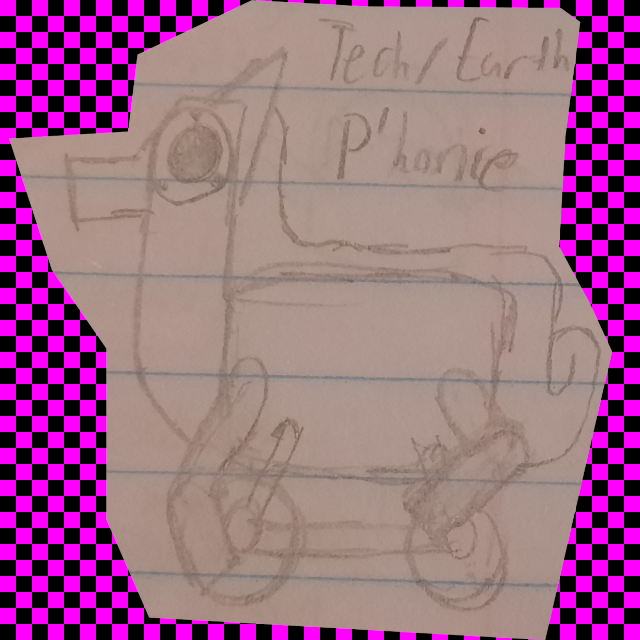 Tech/Earth
P'honie